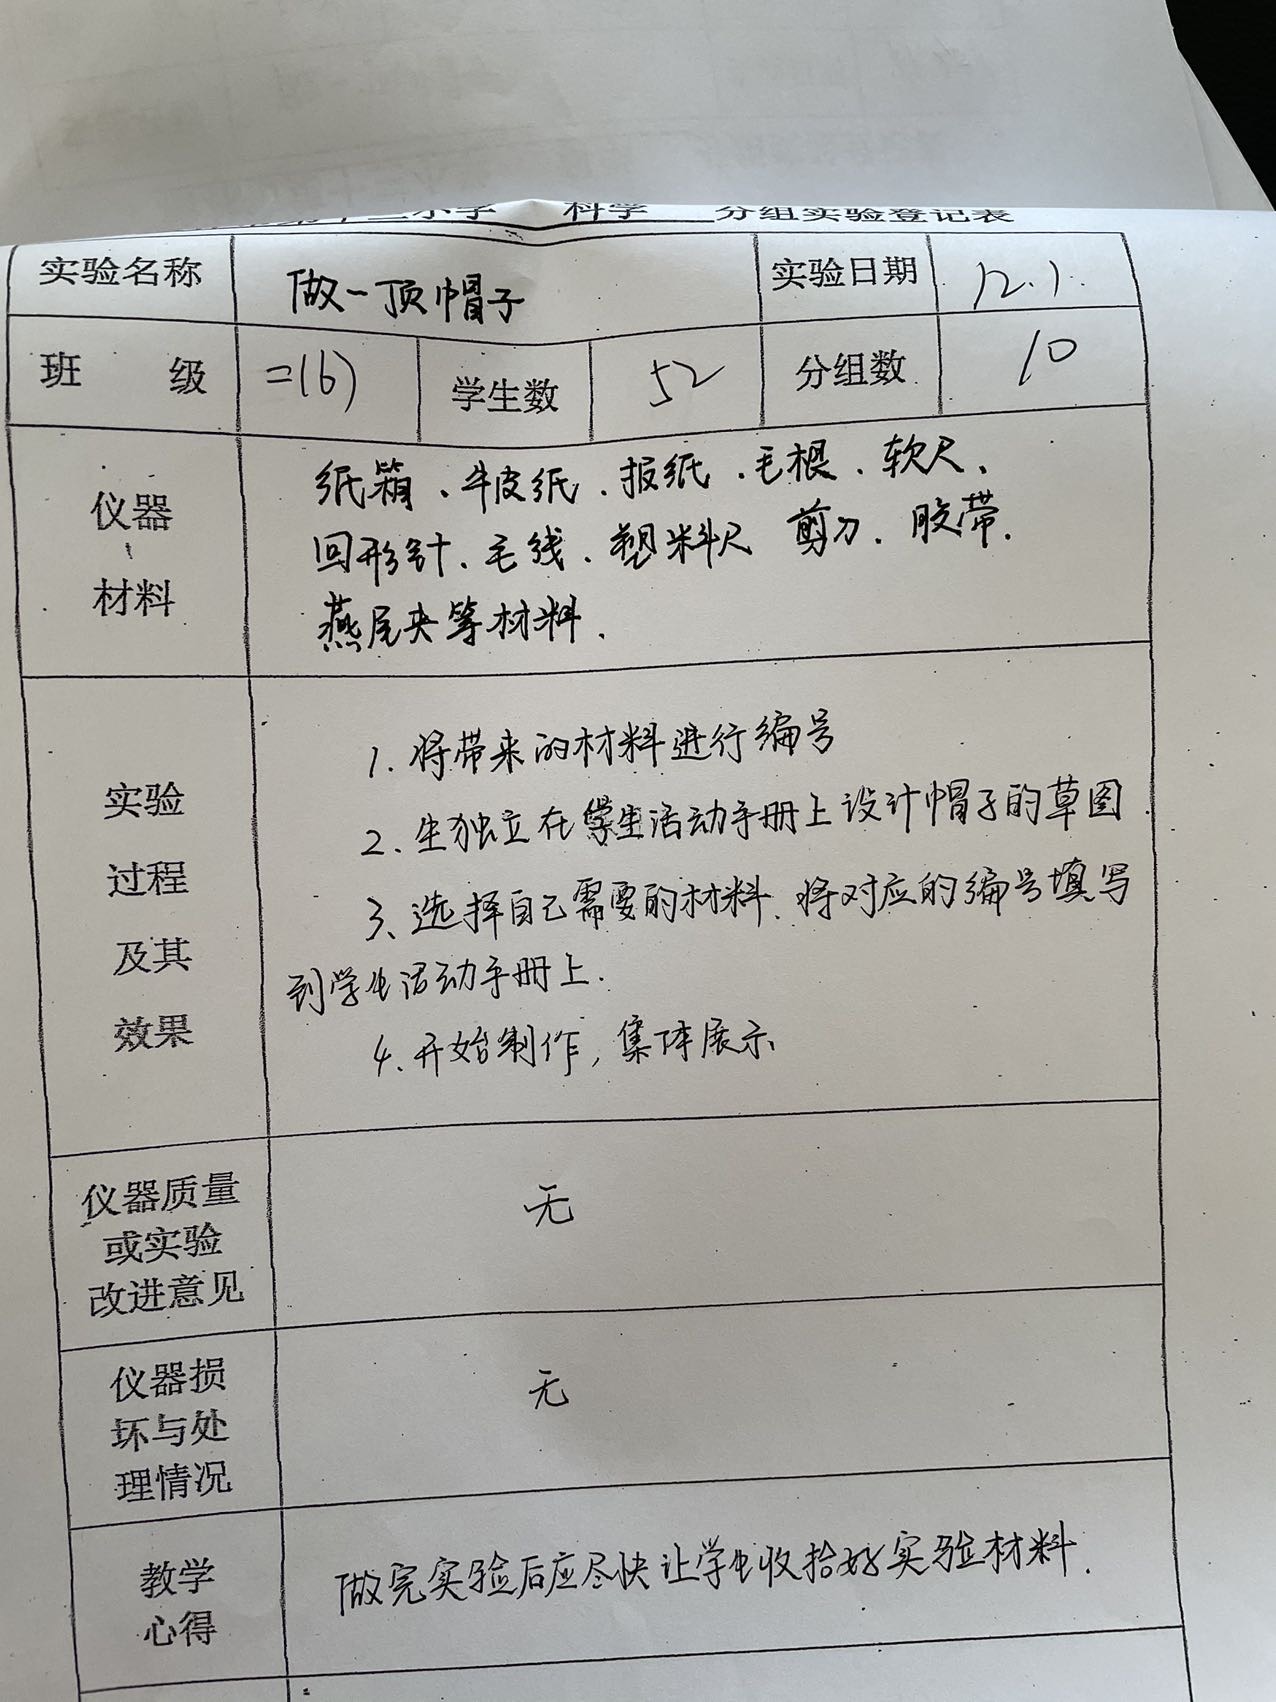 小学 科学 分组实验登记表
实验名称 做一顶帽子 实验日期 12.1.
班 级 二(6) 学生数 52 分组数 10
仪器
材料
纸箱、牛皮纸、报纸、毛根、软尺、
回形针、毛线、塑料尺 剪刀、胶带.
燕尾夹等材料.
实验
过程
及其
效果
1. 将带来的材料进行编号
2、生独立在学生活动手册上设计帽子的草图.
3、选择自己需要的材料、将对应的编号填写
到学生活动手册上.
4. 开始制作, 集体展示
仪器质量
或实验
改进意见
无
仪器损
坏与处
理情况
无
教学
心得
做完实验后应尽快让学生收拾好实验材料.